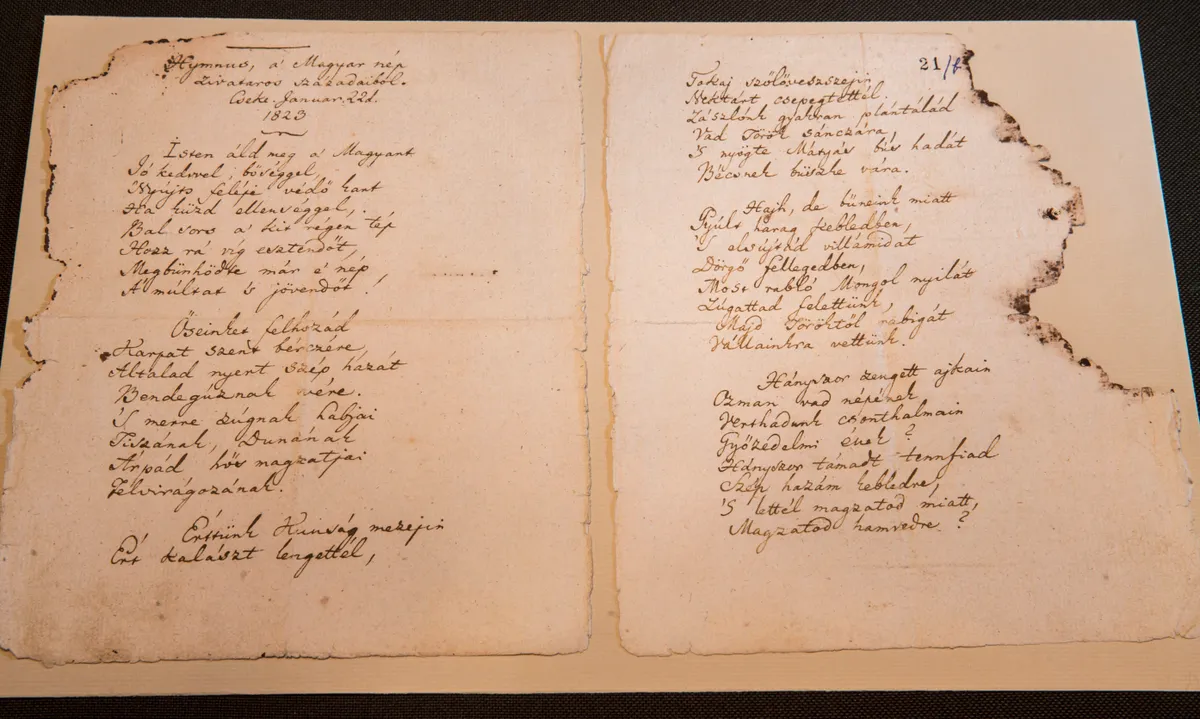 Hymnus, a' Magyar nép
zivataros századaiból.
Cseke. Januar. 22d.
1823
Isten áld meg a' Magyart
Jó kedvvel, bőséggel,
'S nyújts feléje védő kart
Ha küzd ellenséggel,
Bal sors a' kit régen tép
Hozz rá víg esztendőt,
Megbünhödte már e' nép
A' múltat 's jövendőt!
Őseinket felhozád
Kárpát szent bérczére,
Általad nyert szép hazát
Bendegúznak vére.
'S merre zúgnak habjai
Tiszának, Dunának
Árpád hős magzatjai
Felvirágozának.
Értünk Kunság mezejin
Ért kalászt lengettél,
21/f
Tokaj szőlővesszejin
Nektárt csepegtettél.
Zászlónk gyakran plántálád
Vad Török sánczára,
'S nyögte Mátyás bús hadát
Bécsnek büszke vára.
Hajh, de bűneink miatt
Gyúlt harag kebledben,
'S elsújtád villámidat
Dörgő fellegedben,
Most rabló Mongol nyilát
Zúgattad felettünk,
Majd Töröktől rabigát
Vállainkra vettünk.
Hányszor zengett ajkain
Ozman vad népének
Vert hadunk csonthalmain
Győzedelmi ének?
Hányszor támadt tennfiad
Szép hazám kebledre,
'S lettél magzatod miatt,
Magzatod hamvedre?